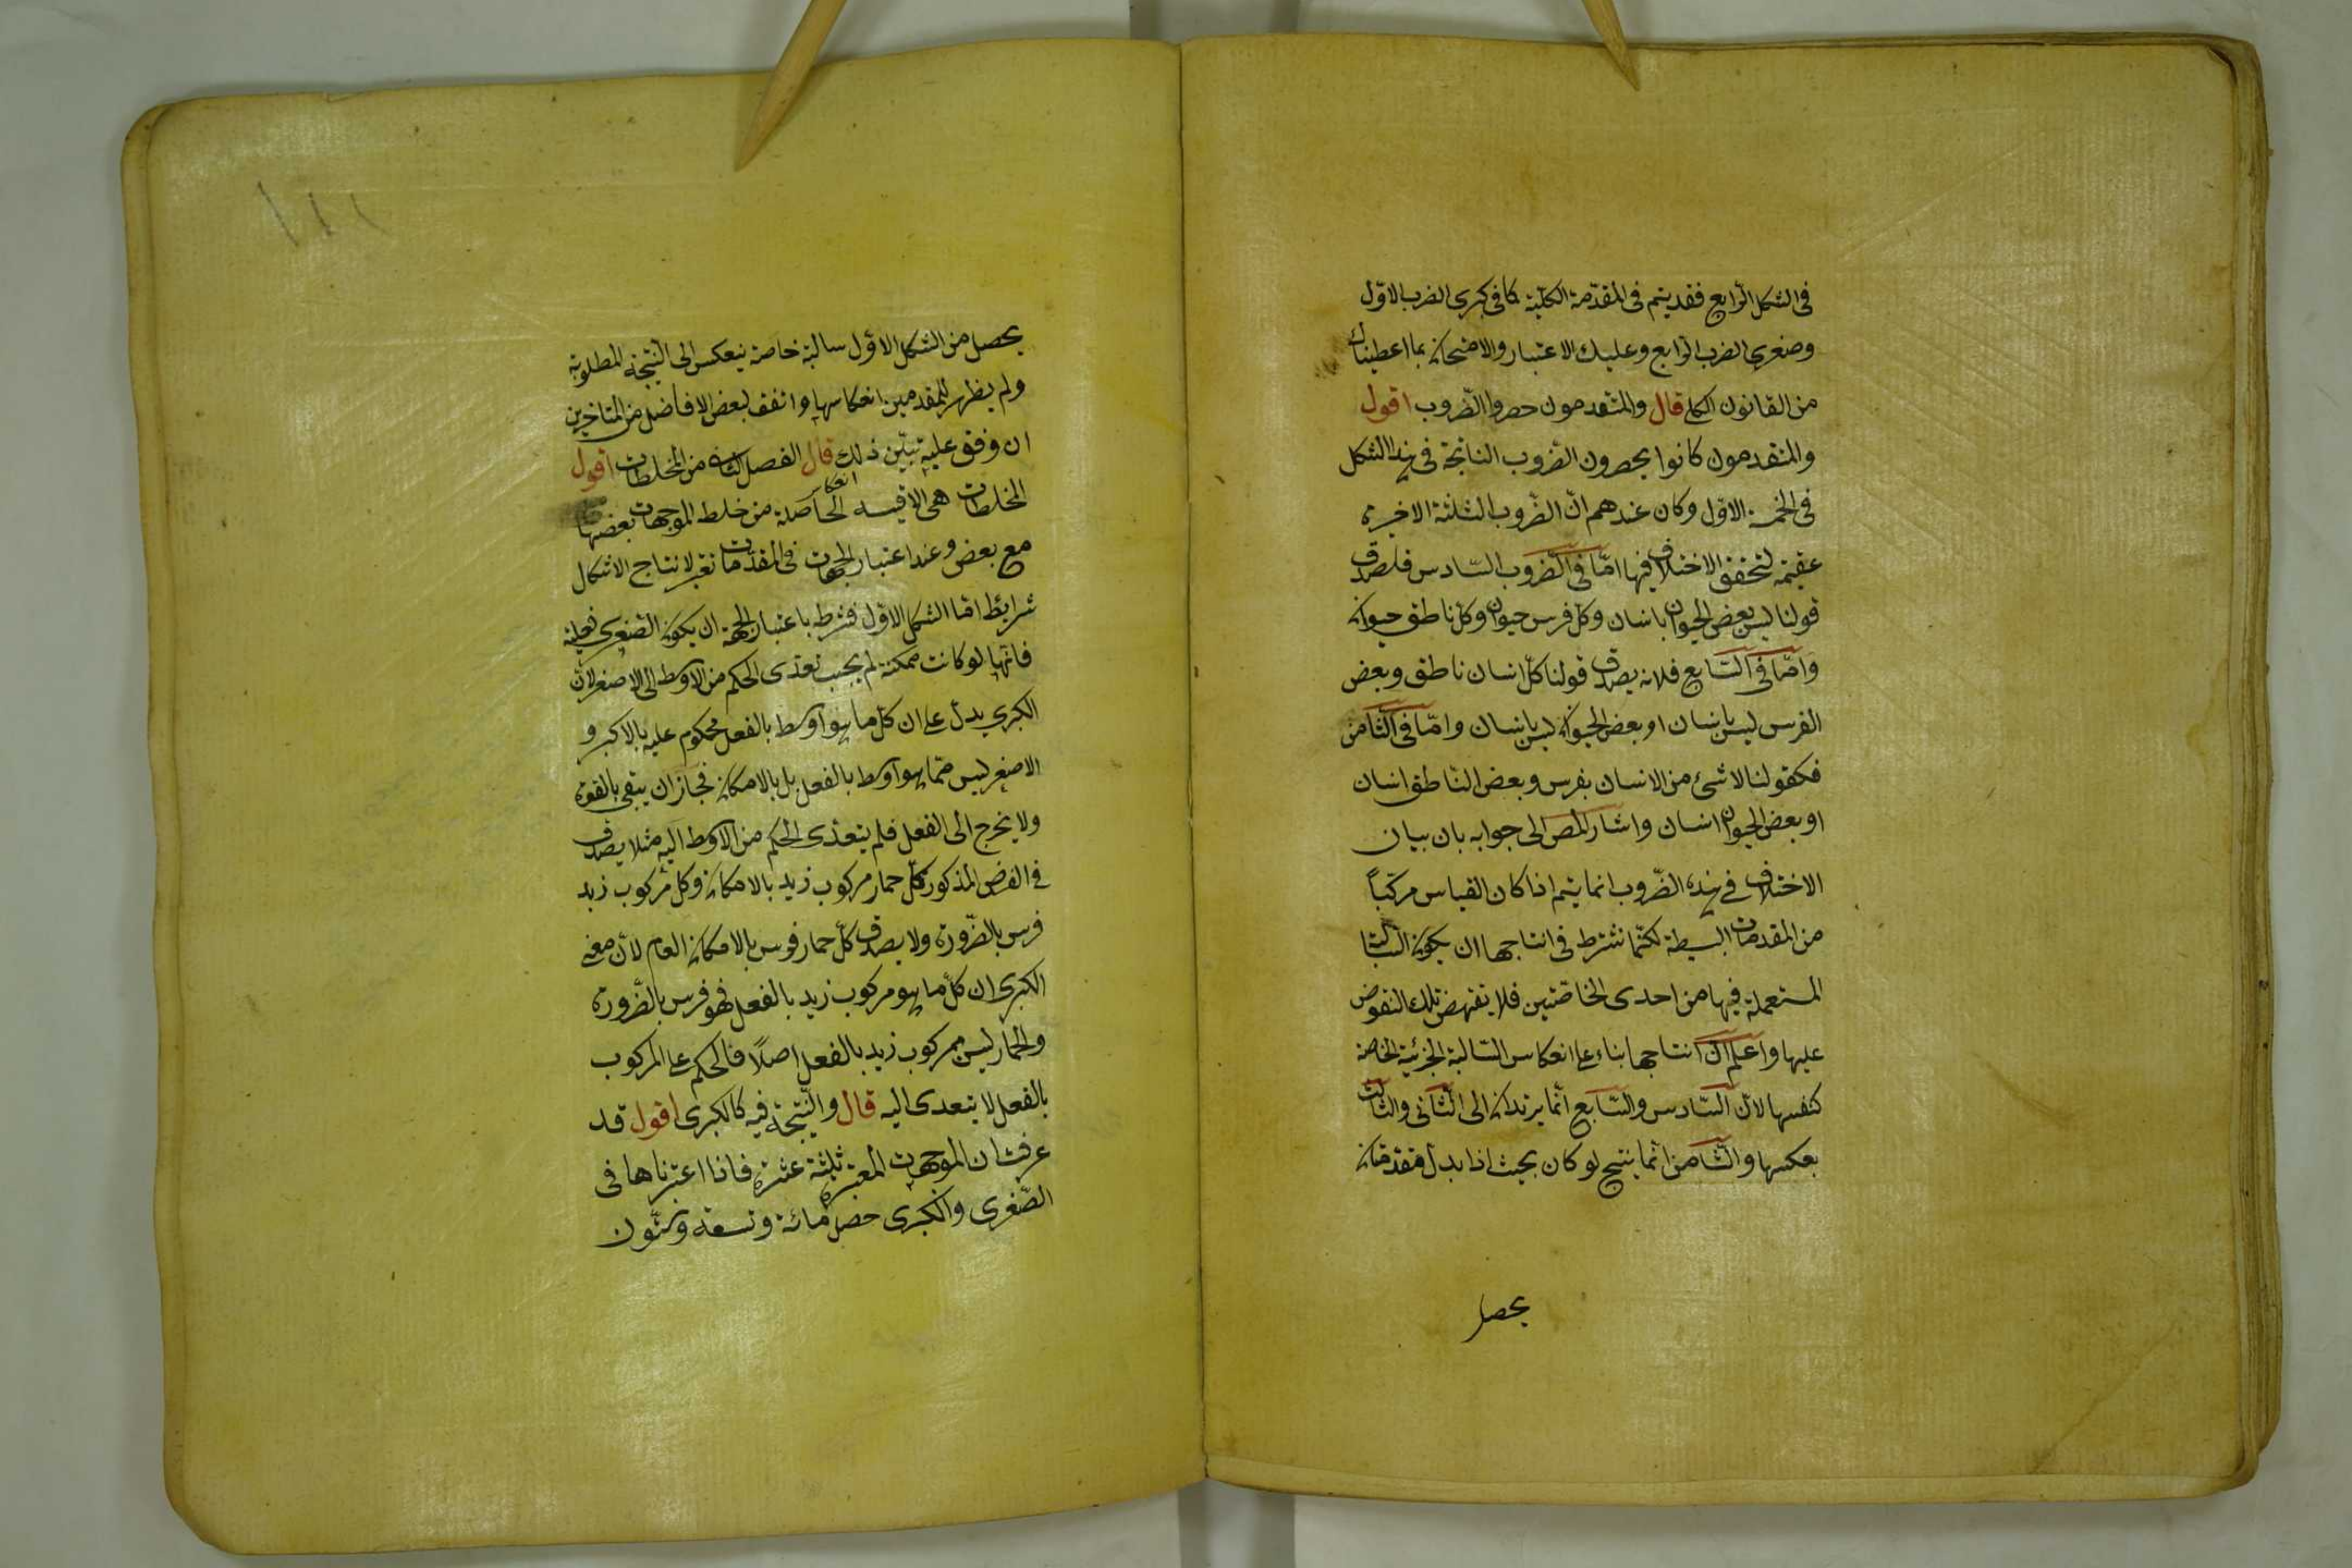 فى الشكل الرّابع فقد يتم فى المقدّمة الكليّة كما فى كبرى الضرب الاوّل
وصغرى الضرب الرابع وعليك الاعتبار والامتحان بما اعطيناك
من القانون الكلى قال والمتقدمون حصروا الضّروب اقول
والمتقدمون كانوا يحصرون الضروب الناتجة فى هذا الشكل
فى الخمسة الاول وكان عندهم انّ الضّروب الثلثة الاخيرة
عقيمة لتحقق الاختلاف فيها امّا فى الضّروب السّادس فلصدق
قولنا ليس بعض الحيوان بانسان وكل فرس حيوان وكل ناطق حيوان
وامّا فى السّابع فلانه يصدق قولنا كلّ انسان ناطق وبعض
الفرس ليس بانسان او بعض الحيوان ليس بانسان وامّا فى الثامن
فكقولنا لا شئ من الانسان بفرس وبعض النّاطق انسان
او بعض الحيوان انسان واشار المص الى جوابه بان بيان
الاختلاف فى هذه الضّروب انما يتم اذا كان القياس مركبّاً
من المقدمات البسيطة لكنّا نشترط فى انتاجها ان يكون السّالبة
المستعملة فيها من احدى الخاصّتين فلا تنهض تلك النقوض
عليها واعلم انّ انتاجها بناء على انعكاس السّالبة الجزئية الخاصة
كنفسها لانّ السّادس والسّابع انّما يرتدان الى الثّانى والثالث
بعكسها والثّامن انّما ينتج لو كان بحيث اذا بدل مقدمتاه
يحصل
يحصل من الشكل الاوّل سالبة خاصة ينعكس الى النتيجة المطلوبة
ولم يظهر للمقدمين انعكاسها واتفق لبعض الافاضل من المتاخرين
ان وقف عليه تبيّن ذلك قال الفصل الثانى من المختلطات اقول
انعكاس
المختلطات هى الاقيسه الحاصلة من خلط الموجهات بعضها
مع بعض وعند اعتبار الجهات فى المقدّمات تعتبر لانتاج الاشكال
شرايط امّا الشكل الاوّل فشرطه باعتبار الجهة ان يكون الصّغرى فعلية
فانّها لو كانت ممكنة لم يجب تعدّى الحكم من الاوسط الى الاصغر لانّ
الكبرى يدلّ على ان كلّ ما هو اوسط بالفعل محكوم عليه بالاكبر و
الاصغر ليس ممّا هو اوسط بالفعل بل بالامكان فجاز ان يبقى بالقوة
ولا يخرج الى الفعل فلم يتعدّى الحكم من الاوسط اليه مثلا يصدق
فى الفرض المذكور كلّ حمار مركوب زيد بالامكان وكل مركوب زيد
فرس بالضّرورة ولا يصدق كلّ حمار فرس بالامكان العام لانّ معنى
الكبرى ان كلّ ما هو مركوب زيد بالفعل فهو فرس بالضّرورة
والحمار ليس بمركوب زيد بالفعل اصلًا فالحكم على المركوب
بالفعل لا يتعدى اليه قال والنّتيجة فيه كالكبرى اقول قد
عرفت ان الموجهات المعتبرة ثلثة عشرة فاذا اعتبرناها فى
الصّغرى والكبرى حصل مائة وتسعة وستّون